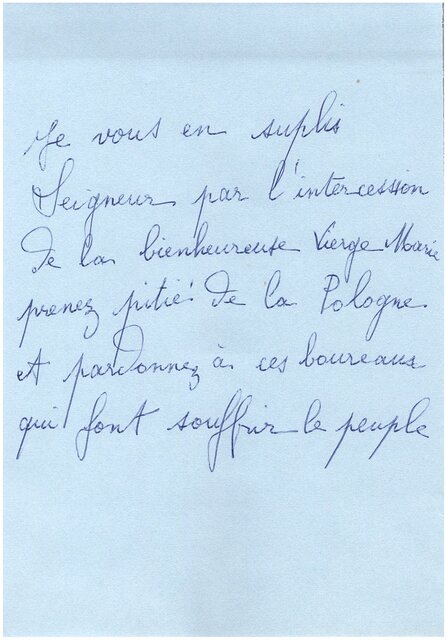 Je vous en suplis
Seigneur par l'intercession
de la bienheureuse Vierge Marie
prenez pitié de la Pologne
et pardonnez à ces boureaux
qui font souffrir le peuple